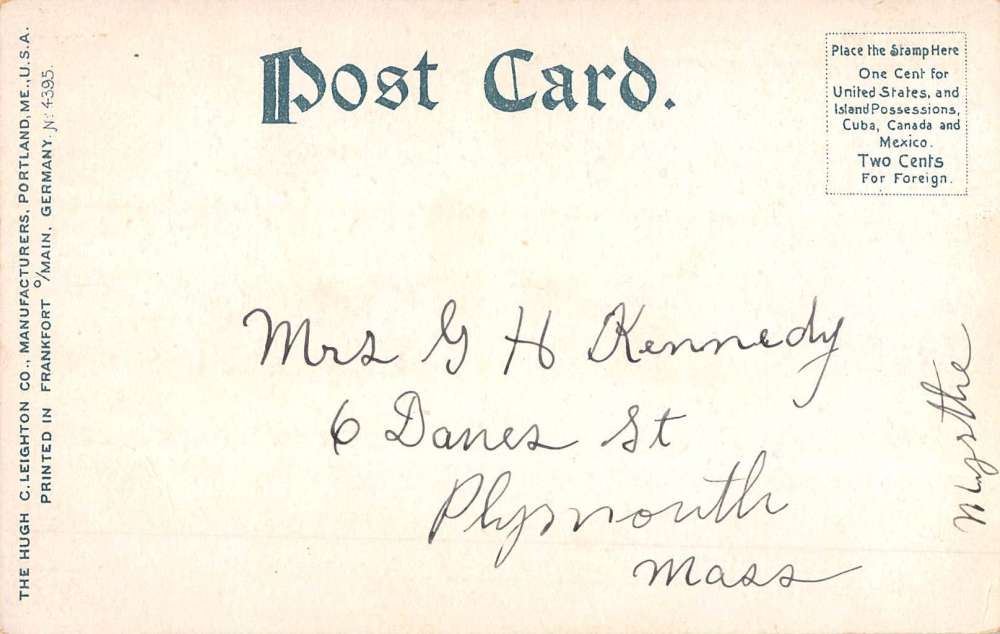 Post Card.
Place the Stamp Here
One Cent for
United States, and
Island Possessions,
Cuba, Canada and
Mexico.
Two Cents
For Foreign.
THE HUGH C. LEIGHTON CO., MANUFACTURERS, PORTLAND, ME., U.S.A.
PRINTED IN FRANKFORT o/MAIN, GERMANY. No 4395.
Mrs G H Kennedy
6 Danes St
Plymouth
Mass